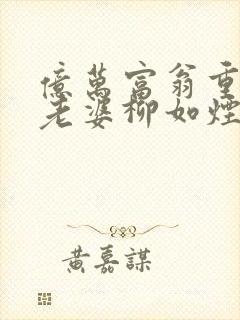 億萬富翁重
老婆柳如煙
黃嘉謀